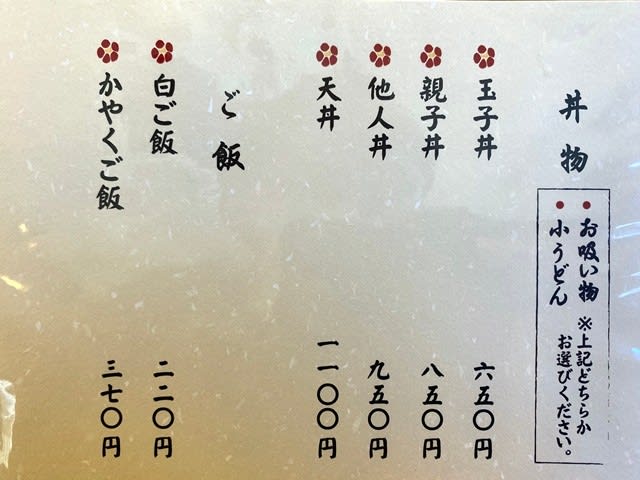 丼物
●お吸い物
●小うどん
※上記どちらか
お選びください。
玉子丼 六五〇円
親子丼 八五〇円
他人丼 九五〇円
天丼 一一〇〇円
ご飯
白ご飯 二二〇円
かやくご飯 三七〇円